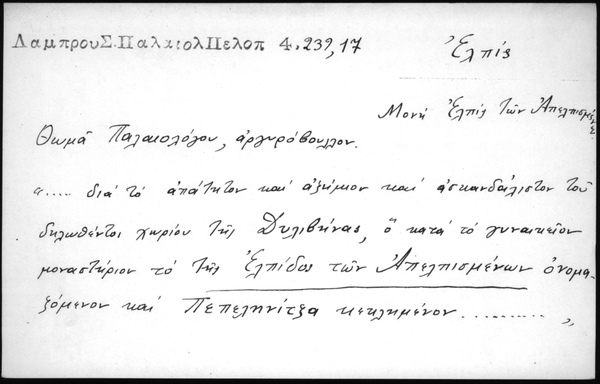 ΛαμπρουΣ.ΠαλαιολΠελοπ 4.239,17
Ἐλπίς
Μονή Ἐλπίς τῶν Ἀπελπισμένων
Θωμᾶ Παλαιολόγου, ἀργυρόβουλλον.
"....διά τό ἀπάτητον καί ἀζήμιον καί ἀσκανδάλιστον τοῦ
δηλωθέντος χωρίου τῆς Δυλιβήνας, ὅ κατά τό γυναικεῖον
μοναστήριον τό τῆς Ἐλπίδος τῶν Ἀπελπισμένων ὀνομα-
ζόμενον καί Πεπεληνίτζα κεκλημένον.......... "